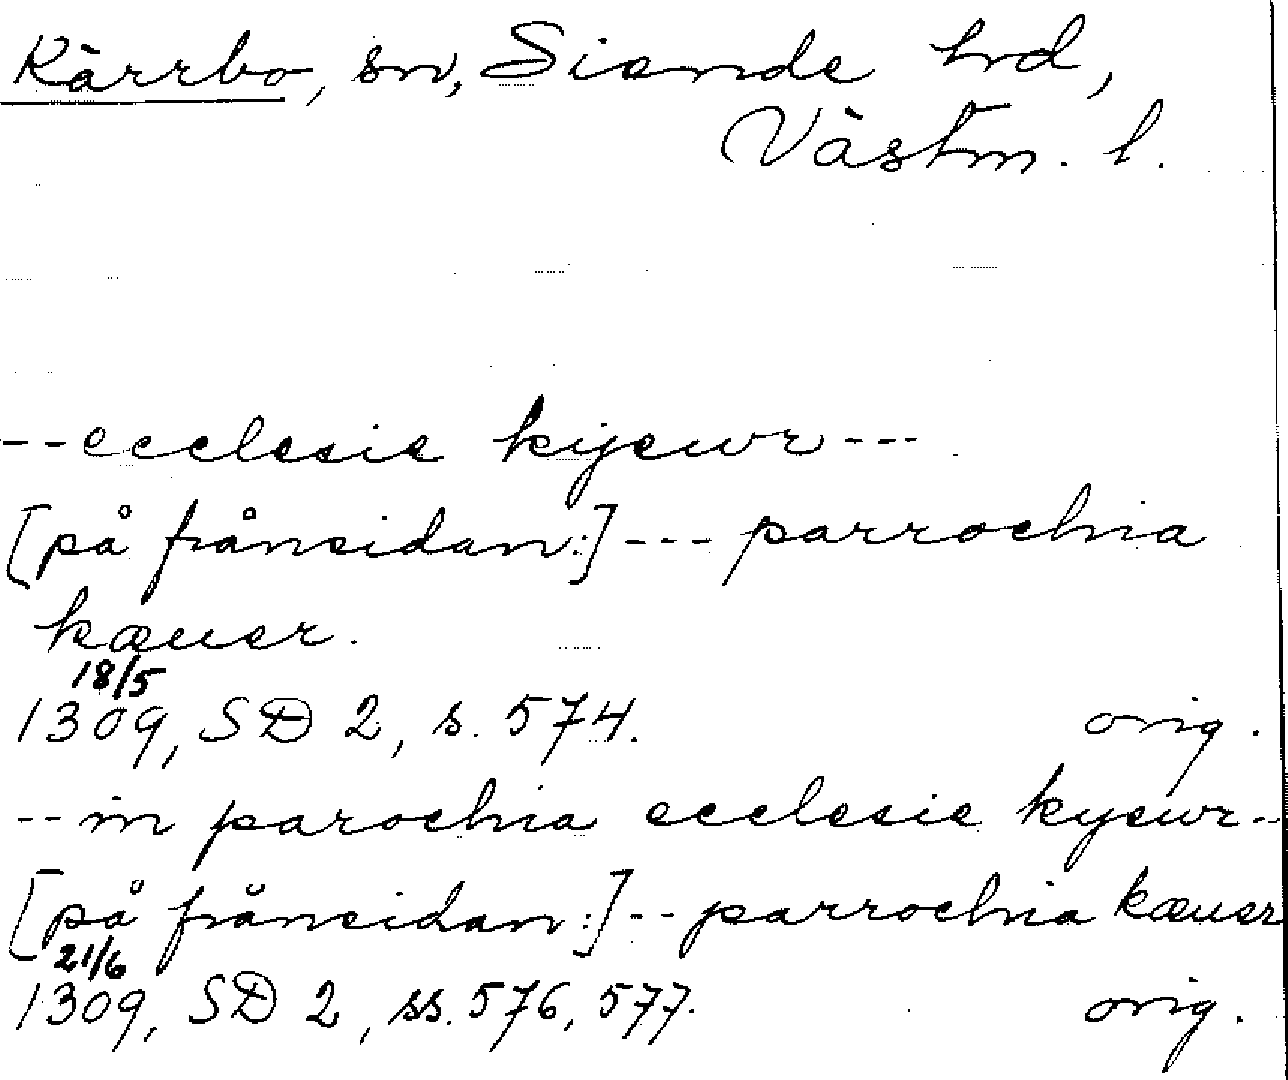 Kärrbo, sn, Siende hd,
Västm. l.
--ecclesie kijewr---
[på frånsidan:]---parrochia
kæuer.
18/5
1309, SD 2, s. 574. orig.
--in parochia ecclesie kyewr--
[på frånsidan:]--parrochia kæuer
21/6
1309, SD 2, ss. 576, 577. orig.